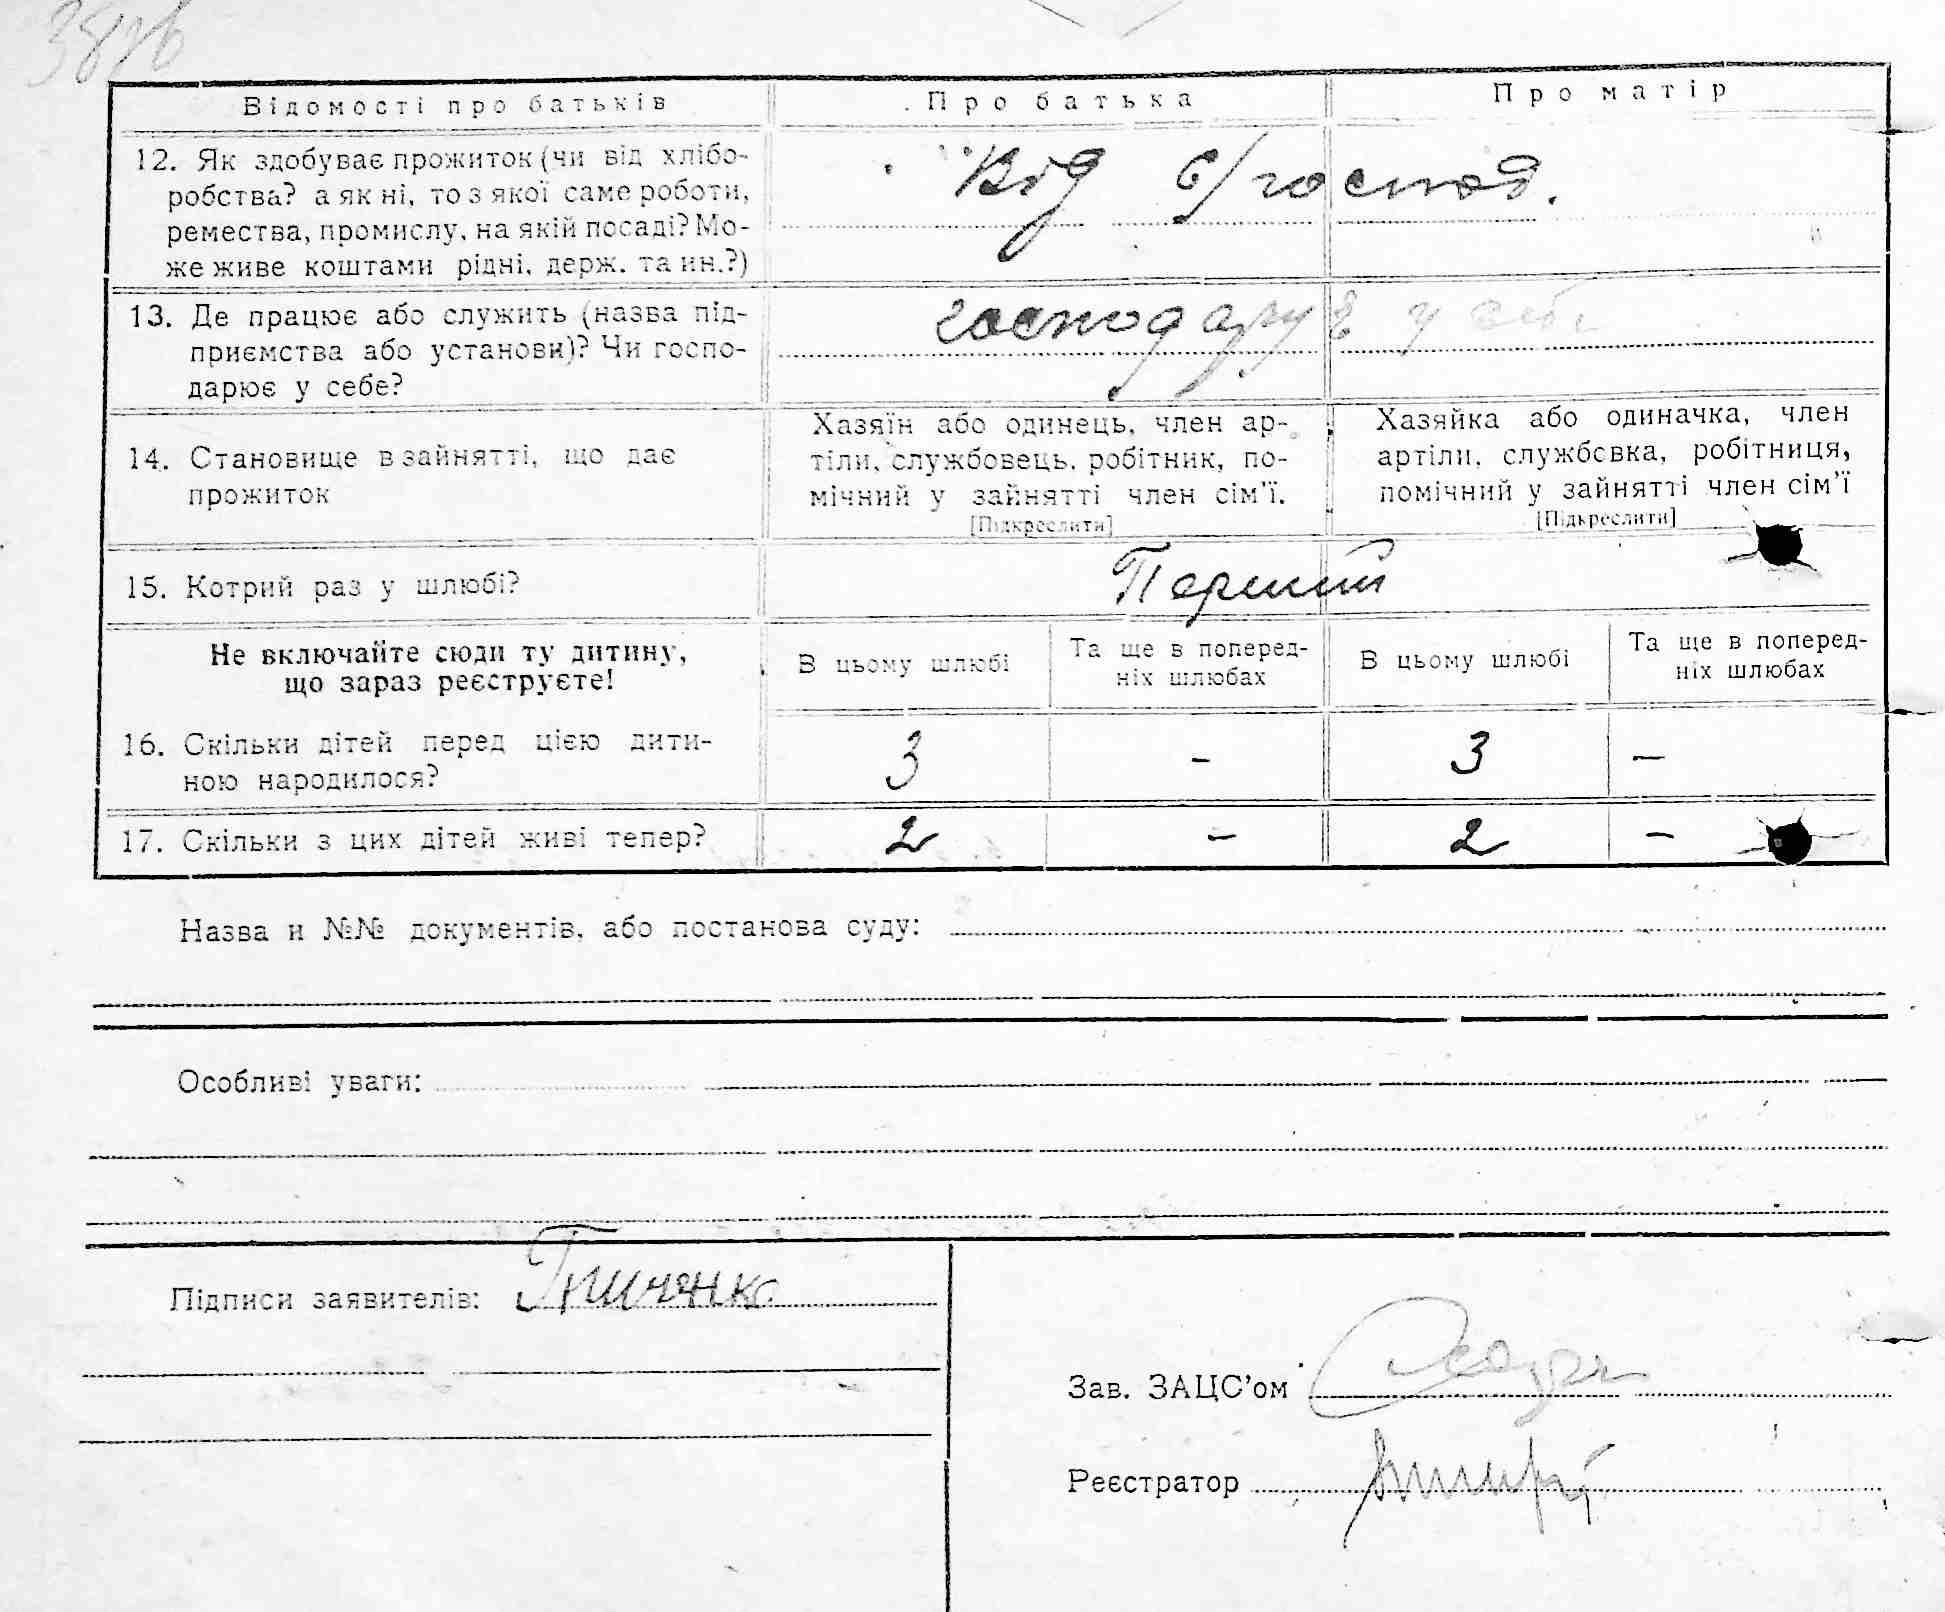 Відомості про батьків
Про батька
Про матір
12. Як здобуває прожиток (чи від хлібо-
робства? а як ні, то з якої саме роботи,
ремества, промислу, на якій посаді? Мо-
же живе коштами рідні, держ. та ин.?)
Від с/господ.
13. Де працює або служить (назва під-
приємства або установи)? Чи госпо-
дарює у себе?
господарує у себе
14. Становище в зайнятті, що дає
прожиток
Хазяїн або одинець, член ар-
тіли, службовець, робітник, по-
мічний у зайнятті член сім'ї.
[Підкреслити]
Хазяйка або одиначка, член
артіли, службовка, робітниця,
помічний у зайнятті член сім'ї
[Підкреслити]
15. Котрий раз у шлюбі?
Перший
Не включайте сюди ту дитину,
що зараз реєструєте!
В цьому шлюбі
Та ще в поперед-
ніх шлюбах
В цьому шлюбі
Та ще в поперед-
ніх шлюбах
16. Скільки дітей перед цією дити-
ною народилося?
3 - 3 -
17. Скільки з цих дітей живі тепер?
2 - 2 -
Назва и №№ документів, або постанова суду:
Особливі уваги:
Підписи заявителів:
Зав. ЗАЦС'ом
Реєстратор